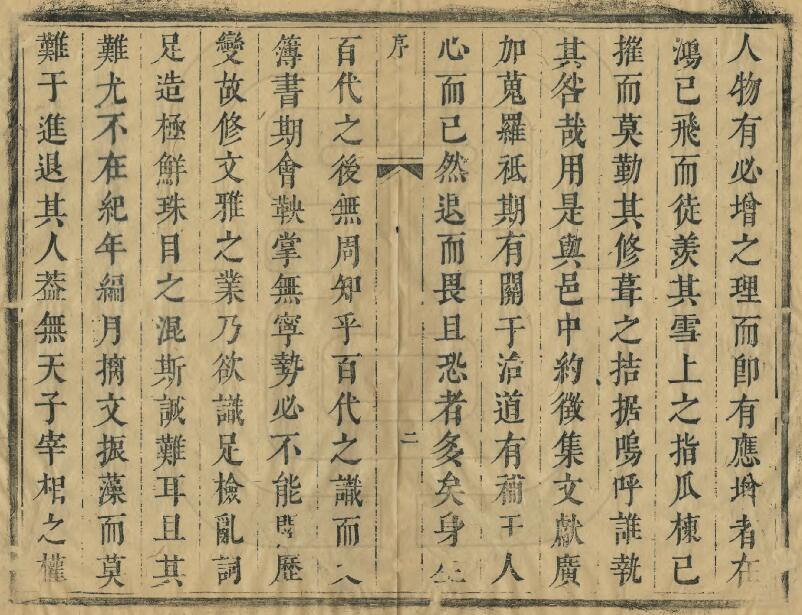 人物有必增之理而卽有應增者在
鴻已飛而徒羡其雪上之指瓜棟已
摧而莫勤其修葺之拮据嗚呼誰執
其咎哉用是與邑中約徵集文獻廣
加蒐羅祗期有關于治道有補于人
心而已然退而畏且恐者多矣身生
序
二
百代之後無周知乎百代之識而
簿書期會鞅掌無寧勢必不能歷
變故修文雅之業乃欲識足檢亂詞
足造極鮮珠目之混斯誠難耳且其
難尤不在紀年編月摛文振藻而莫
難于進退其人葢無天子宰相之權